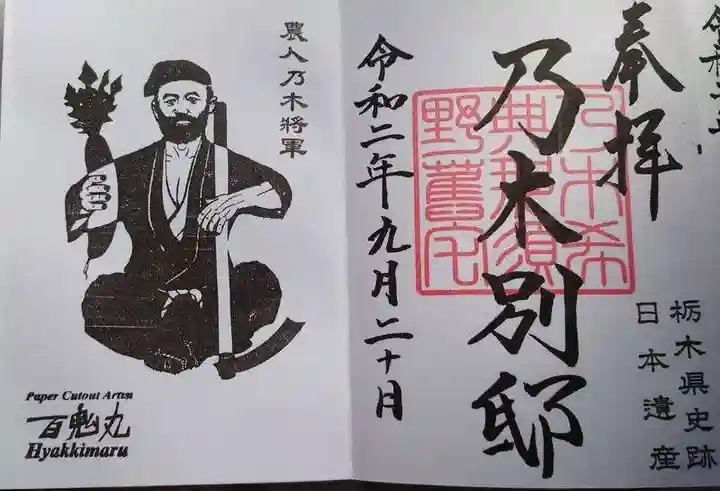 奉拝
乃木別邸
乃木希
典那須
野舊宅
栃木県史跡
日本遺産
令和二年九月二十日
農人乃木将軍
Paper Cutout Artist
百鬼丸
Hyakkimaru